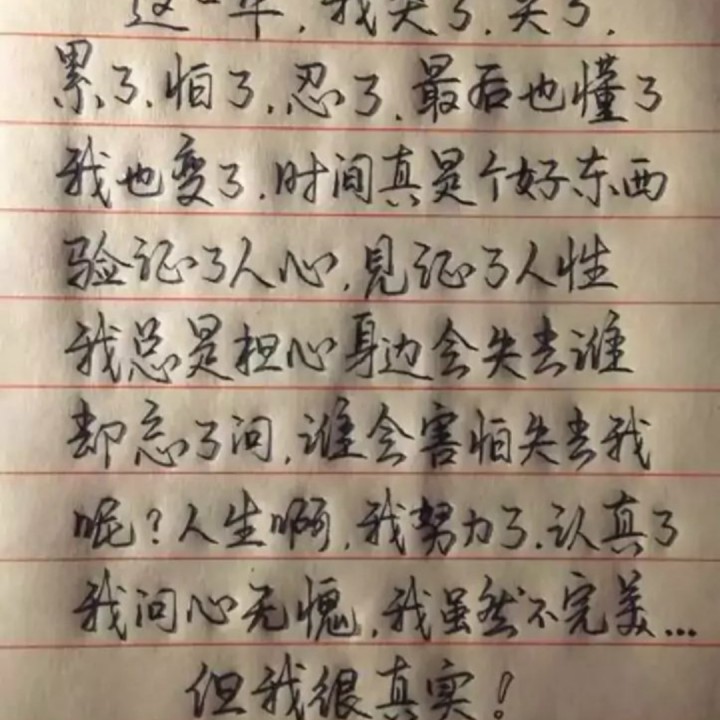 这一年,我哭了.笑了.
累了.怕了.忍了.最后也懂了
我也变了.时间真是个好东西
验证了人心.见证了人性
我总是担心身边会失去谁
却忘了问.谁会害怕失去我
呢?人生啊.我努力了.认真了
我问心无愧.我虽然不完美...
但我很真实!